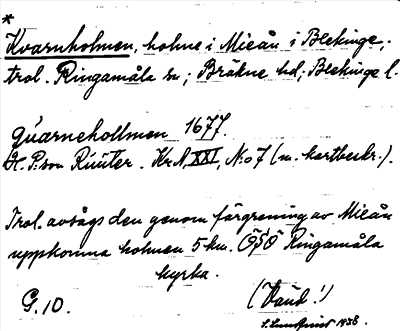 *
Kvarnholmen, holme i Mieån i Blekinge;
trol. Ringamåla sn; Bräkne hd; Blekinge l.
Quarnehollmen 1677.
H. P:son Ruuter. Kr.A, XXI, N:o 7 (m. kartbeskr.).
Trol. avsågs den genom förgrening av Mieån
uppkomna holmen 5 km. ÖSÖ Ringamåla
kyrka.
G. 10.
(Band!)
S. Lundquist 1938.